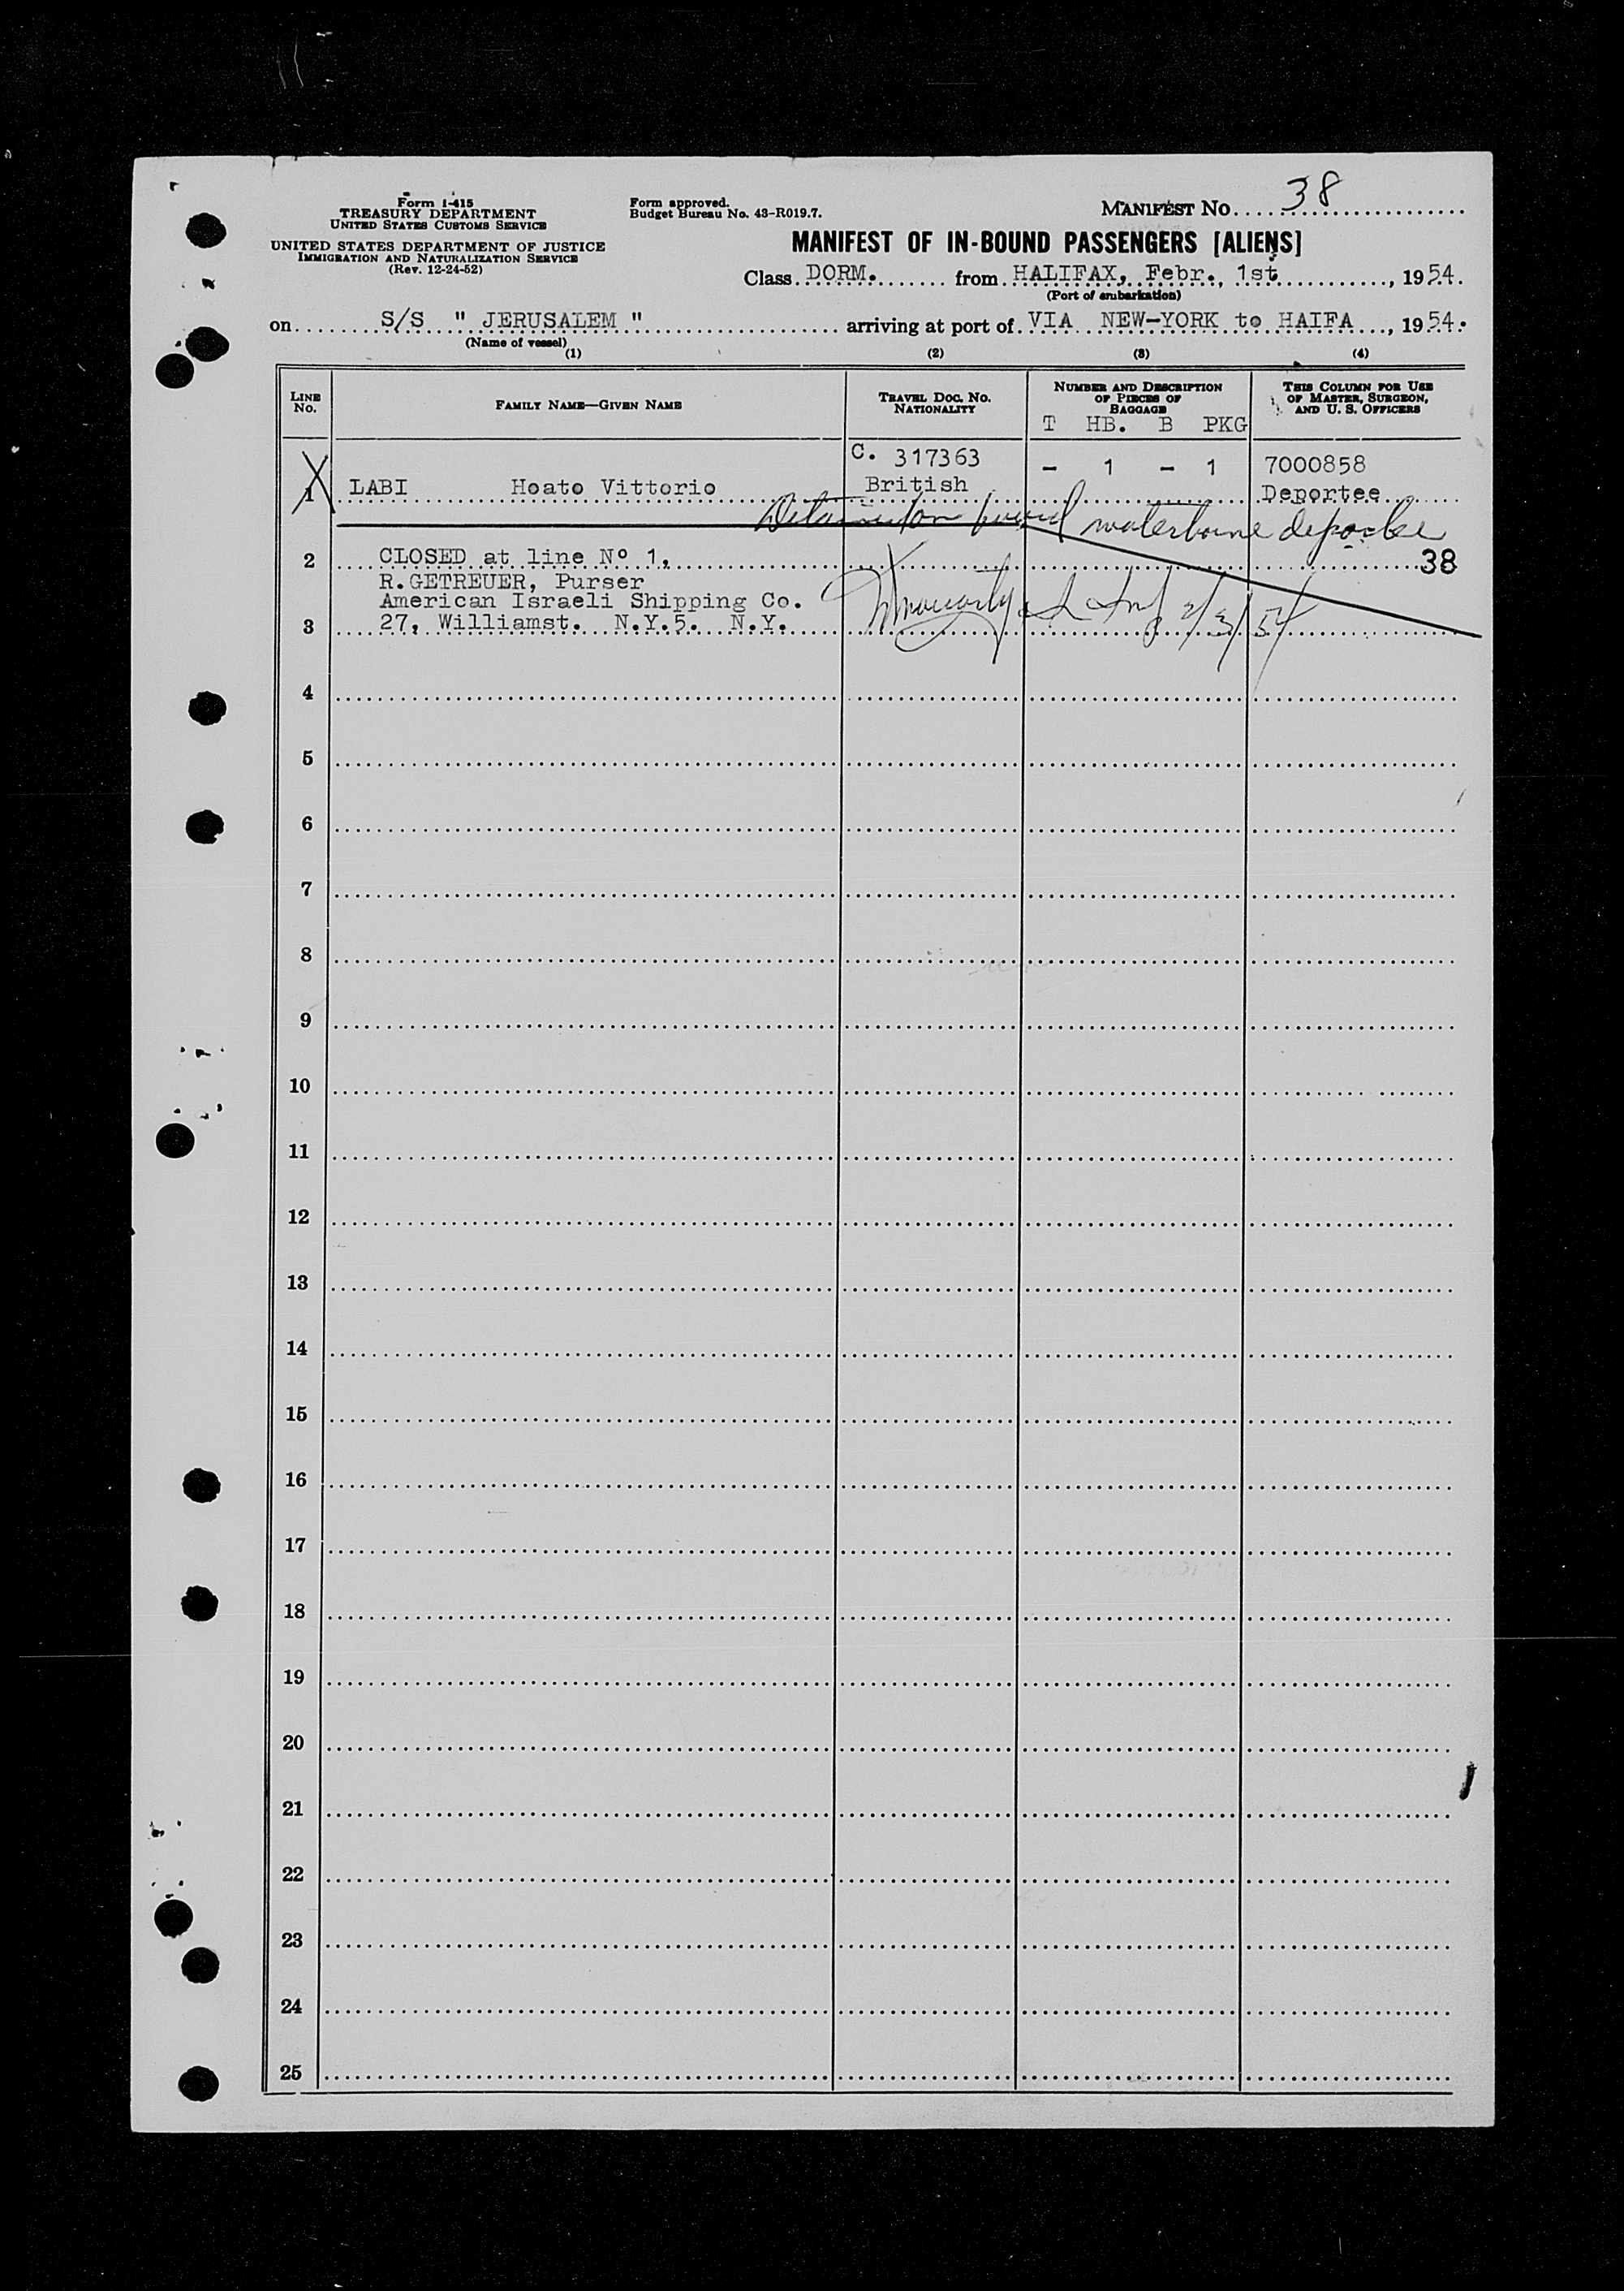 Form I-415
TREASURY DEPARTMENT
UNITED STATES CUSTOMS SERVICE
UNITED STATES DEPARTMENT OF JUSTICE
IMMIGRATION AND NATURALIZATION SERVICE
(Rev. 12-24-52)
Form approved.
Budget Bureau No. 43-R019.7.
MANIFEST No. 38
MANIFEST OF IN-BOUND PASSENGERS [ALIENS]
Class DORM. from HALIFAX, Febr., 1st, 1954.
(Port of embarkation)
on S/S " JERUSALEM " arriving at port of VIA NEW-YORK to HAIFA, 1954.
(Name of vessel)
(1) (2) (3) (4)
LINE No. FAMILY NAME—GIVEN NAME TRAVEL DOC. NO. NATIONALITY NUMBER AND DESCRIPTION OF PIECES OF BAGGAGE THIS COLUMN FOR USE OF MASTER, SURGEON, AND U. S. OFFICERS
T HB. B PKG
C. 317363 - 1 - 1 7000858
1 LABI Hoato Vittorio British Deportee
on board waterborne deportee
2 CLOSED at line Nº 1, 38
R.GETREUER, Purser
American Israeli Shipping Co.
3 27, Williamst. N.Y.5. N.Y. 2/3/54
4
5
6
7
8
9
10
11
12
13
14
15
16
17
18
19
20
21
22
23
24
25